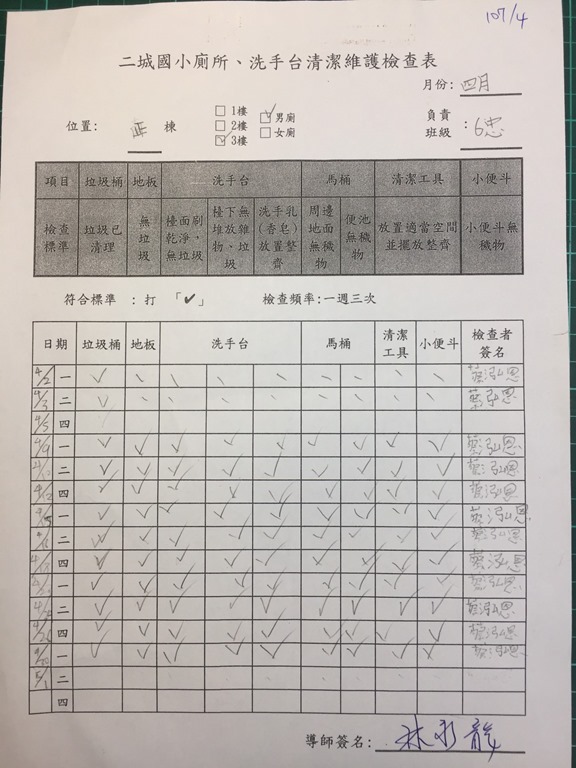 107/4
二城國小廁所、洗手台清潔維護檢查表
月份: 四月
位置: 正 棟 □1樓 □2樓 ☑3樓 ☑男廁 □女廁 負責班級: 6忠
項目 垃圾桶 地板 洗手台 馬桶 清潔工具 小便斗
檢查標準 垃圾已清理 無垃圾 檯面刷乾淨,無垃圾 檯下無堆放雜物、垃圾 洗手乳(香皂)放置整齊 周邊地面無穢物 便池無穢物 放置適當空間並擺放整齊 小便斗無穢物
符合標準 : 打 「✔」 檢查頻率:一週三次
日期 垃圾桶 地板 洗手台 馬桶 清潔工具 小便斗 檢查者簽名
4/2 一 ✓ 蔡泓恩
4/3 二 ✓ 蔡泓恩
4/5 四
4/9 一 ✓ ✓ ✓ ✓ ✓ ✓ ✓ ✓ ✓ 蔡泓恩
二 ✓ ✓ ✓ ✓ ✓ ✓ ✓ ✓ ✓ 蔡泓恩
4/12 四 ✓ ✓ ✓ ✓ ✓ ✓ ✓ ✓ ✓ 蔡泓恩
一 ✓ ✓ ✓ ✓ ✓ ✓ ✓ ✓ ✓ 蔡泓恩
二 ✓ ✓ ✓ ✓ ✓ ✓ ✓ ✓ ✓ 蔡泓恩
四 ✓ ✓ ✓ ✓ ✓ ✓ ✓ ✓ ✓ 蔡泓恩
一 ✓ ✓ ✓ ✓ ✓ ✓ ✓ ✓ ✓ 蔡泓恩
二 ✓ ✓ ✓ ✓ ✓ ✓ ✓ ✓ ✓ 蔡泓恩
4/26 四 ✓ ✓ ✓ ✓ ✓ ✓ ✓ ✓ ✓ 蔡泓恩
4/30 一 ✓ ✓ ✓ ✓ ✓ ✓ ✓ ✓ ✓ 蔡泓恩
5/1 二
四
導師簽名: